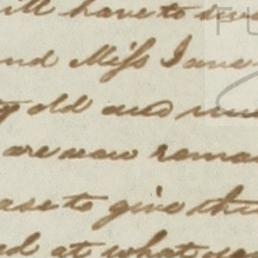 ill have to
and Miss Jane
old and
are now
ase to give
ed at what